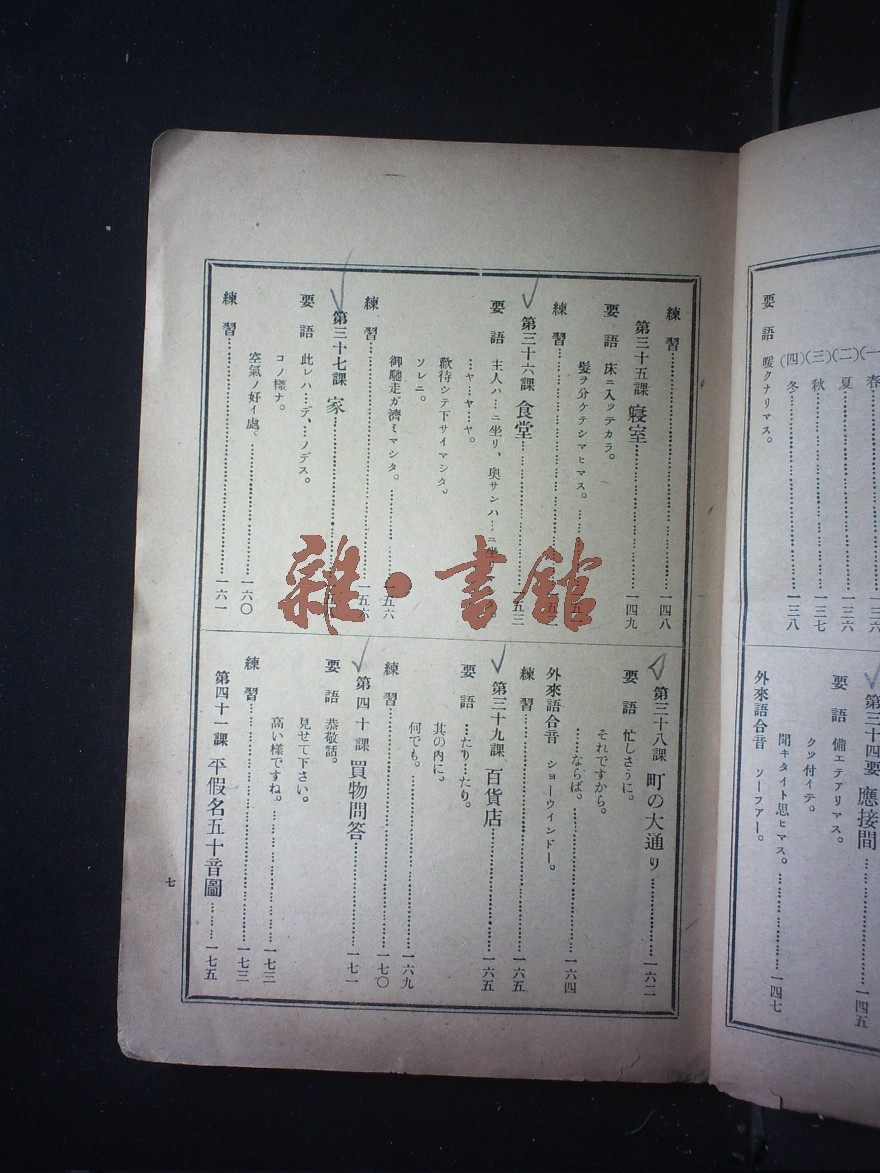 春
(二)夏……一三六
(三)秋……一三七
(四)冬……一三八
要語 暖クナリマス。
第三十四課 應接間……一四五
要語 備エテアリマス。
クッ付イテ。
聞キタイト思ヒマス。……一四七
外來語合音 ソーフアー。
練習……一四八
第三十五課 寢室……一四九
要語 床ニ入ッテカラ。
髮ヲ分ケテシマヒマス。
練習
第三十六課 食堂……一五三
要語 主人ハ…ニ坐リ、奥サンハ…ニ坐
…ヤ…ヤ…ヤ。
歡待シテ下サイマシタ。
ソレニ。
御馳走ガ濟ミマシタ。……一五六
練習……一五六
第三十七課 家
要語 此レハ…デ、…ノデス。
コノ樣ナ。
空氣ノ好イ處。……一六〇
練習……一六一
第三十八課 町の大通り……一六二
要語 忙しさうに。
それですから。
……ならば。……一六四
外來語合音 ショーウインドー。
練習……一六五
第三十九課 百貨店……一六五
要語 …たり…たり。
其の內に。
何でも。……一六九
練習……一七〇
第四十課 買物問答……一七一
要語 恭敬話。
見せて下さい。
高い樣ですね。……一七三
練習……一七三
第四十一課 平假名五十音圖……一七五
七
雜·書館